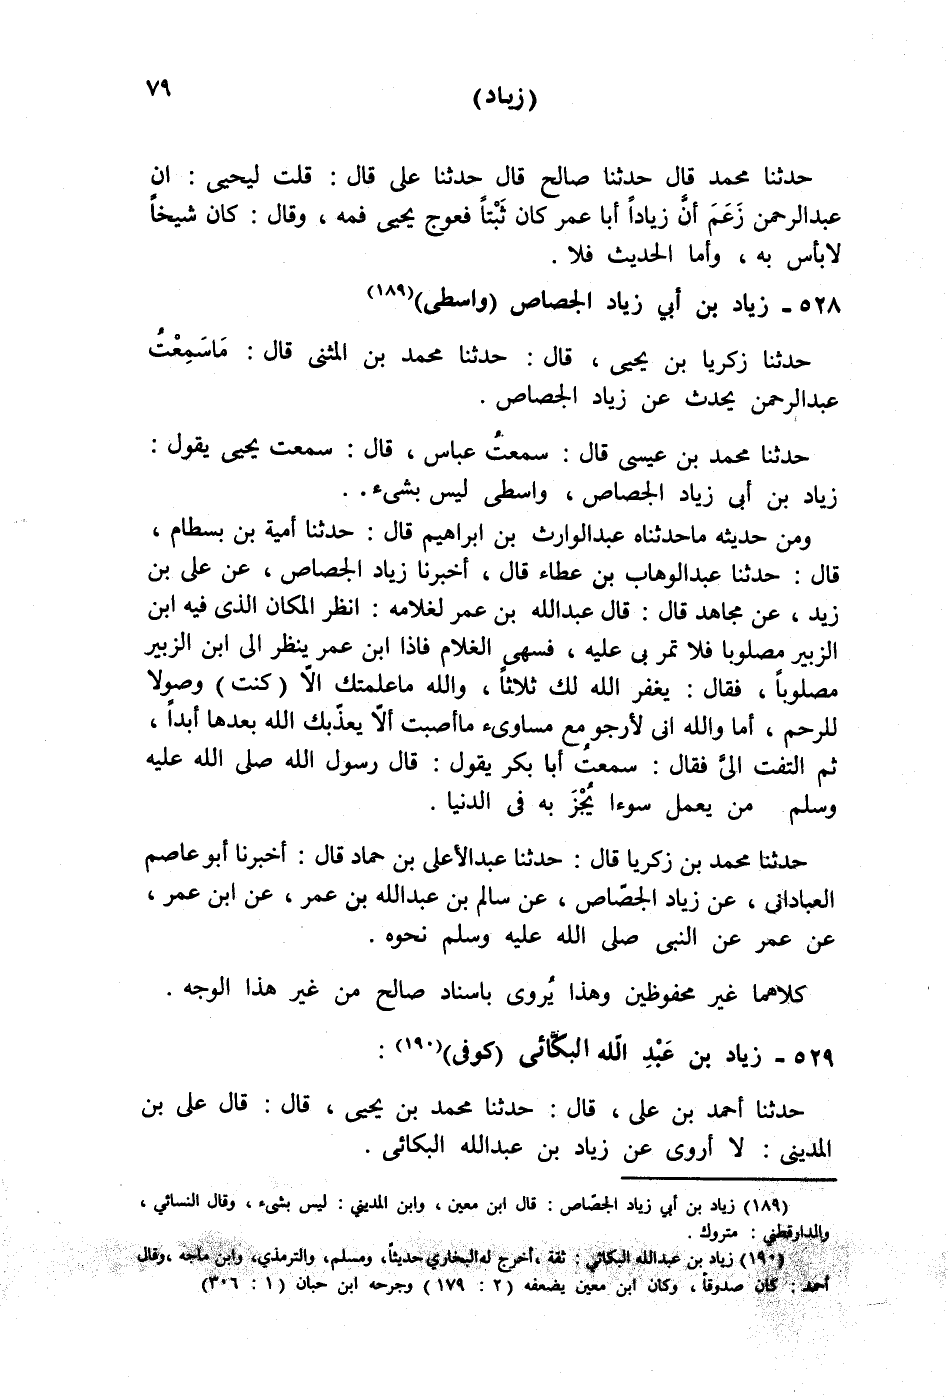 (زياد)
٧٩
حدثنا محمد قال حدثنا صالح قال حدثنا على قال : قلت ليحيى : ان
عبدالرحمن زَعَمَ أنَّ زياداً أبا عمر كان ثَبْتاً فعوج يحيى فمه ، وقال : كان شيخاً
لابأس به ، وأما الحديث فلا .
٥٢٨ ـ زياد بن أبي زياد الجصاص (واسطى)(١٨٩)
حدثنا زكريا بن يحيى ، قال : حدثنا محمد بن المثنى قال : مَاسَمِعْتُ
عبدالرحمن يحدث عن زياد الجصاص .
حدثنا محمد بن عيسى قال : سمعتُ عباس ، قال : سمعت يحيى يقول :
زياد بن أبى زياد الجصاص ، واسطى ليس بشىء . .
ومن حديثه ماحدثناه عبدالوارث بن ابراهيم قال : حدثنا أمية بن بسطام ،
قال : حدثنا عبدالوهاب بن عطاء قال ، أخبرنا زياد الجصاص ، عن على بن
زيد ، عن مجاهد قال : قال عبدالله بن عمر لغلامه : انظر المكان الذى فيه ابن
الزبير مصلوبا فلا تمر بى عليه ، فسهى الغلام فاذا ابن عمر ينظر الى ابن الزبير
مصلوباً ، فقال : يغفر الله لك ثلاثاً ، والله ماعلمتك الاّ (كنت) وصولا
للرحم ، أما والله انى لأرجو مع مساوىء ماأصبت ألاّ يعذّبك الله بعدها أبداً ،
ثم التفت الىَّ فقال : سمعتُ أبا بكر يقول : قال رسول الله صلى الله عليه
وسلم من يعمل سوءا يُجْزَ به فى الدنيا .
حدثنا محمد بن زكريا قال : حدثنا عبدالأعلى بن حماد قال : أخبرنا أبو عاصم
العبادانى ، عن زياد الجصّاص ، عن سالم بن عبدالله بن عمر ، عن ابن عمر ،
عن عمر عن النبى صلى الله عليه وسلم نحوه .
كلاهما غير محفوظين وهذا يُروى باسناد صالح من غير هذا الوجه .
٥٢٩ ـ زياد بن عَبْدِ الله البكّائى (كوفى)(١٩٠) :
حدثنا أحمد بن على ، قال : حدثنا محمد بن يحيى ، قال : قال على بن
المدينى : لا أروى عن زياد بن عبدالله البكائى .
(١٨٩) زياد بن أبي زياد الجصّاص : قال ابن معين ، وابن المديني : ليس بشىء ، وقال النسائي ،
والدارقطني : متروك .
(١٩٠) زياد بن عبدالله البكائي : ثقة ،أخرج له البخاري حديثاً، ومسلم، والترمذي، وابن ماجه ،وقال
أحمد : كان صدوقاً ، وكان ابن معين يضعفه (٢ : ١٧٩) وجرحه ابن حبان (١ : ٣٠٦)